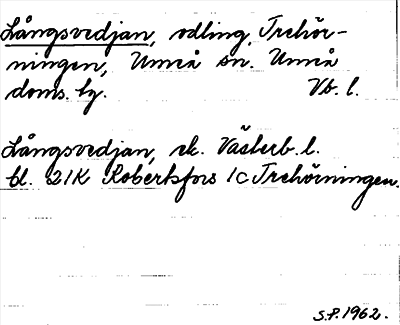 Långsvedjan, odling, Trehör-
ningen, Umeå sn. Umeå
doms. hg. Vb. l.
Långsvedjan, ek. Västerb. l.
bl. 21K Robertsfors 1c Trehörningen.
S.P. 1962.